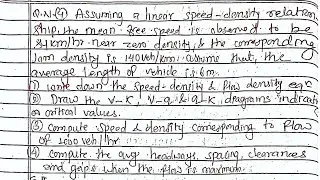 Q.N.(9) Assuming a linear speed-density relation
ship, the mean free speed is observed to be
km/hr near zero density, & the corresponding
jam density is 140 veh/km. Assume that, the
average length of vehicle is 6m.
(1) write down the speed-density & flow density eqn
(2) Draw the V-K, V-q & q-K, diagrams indicati
critical values.
(3) compute speed & density corresponding to flow
of 1000 veh/hr
(4) compute the avg. headways, spacing, clearances
and gaps when the flow is maximum.